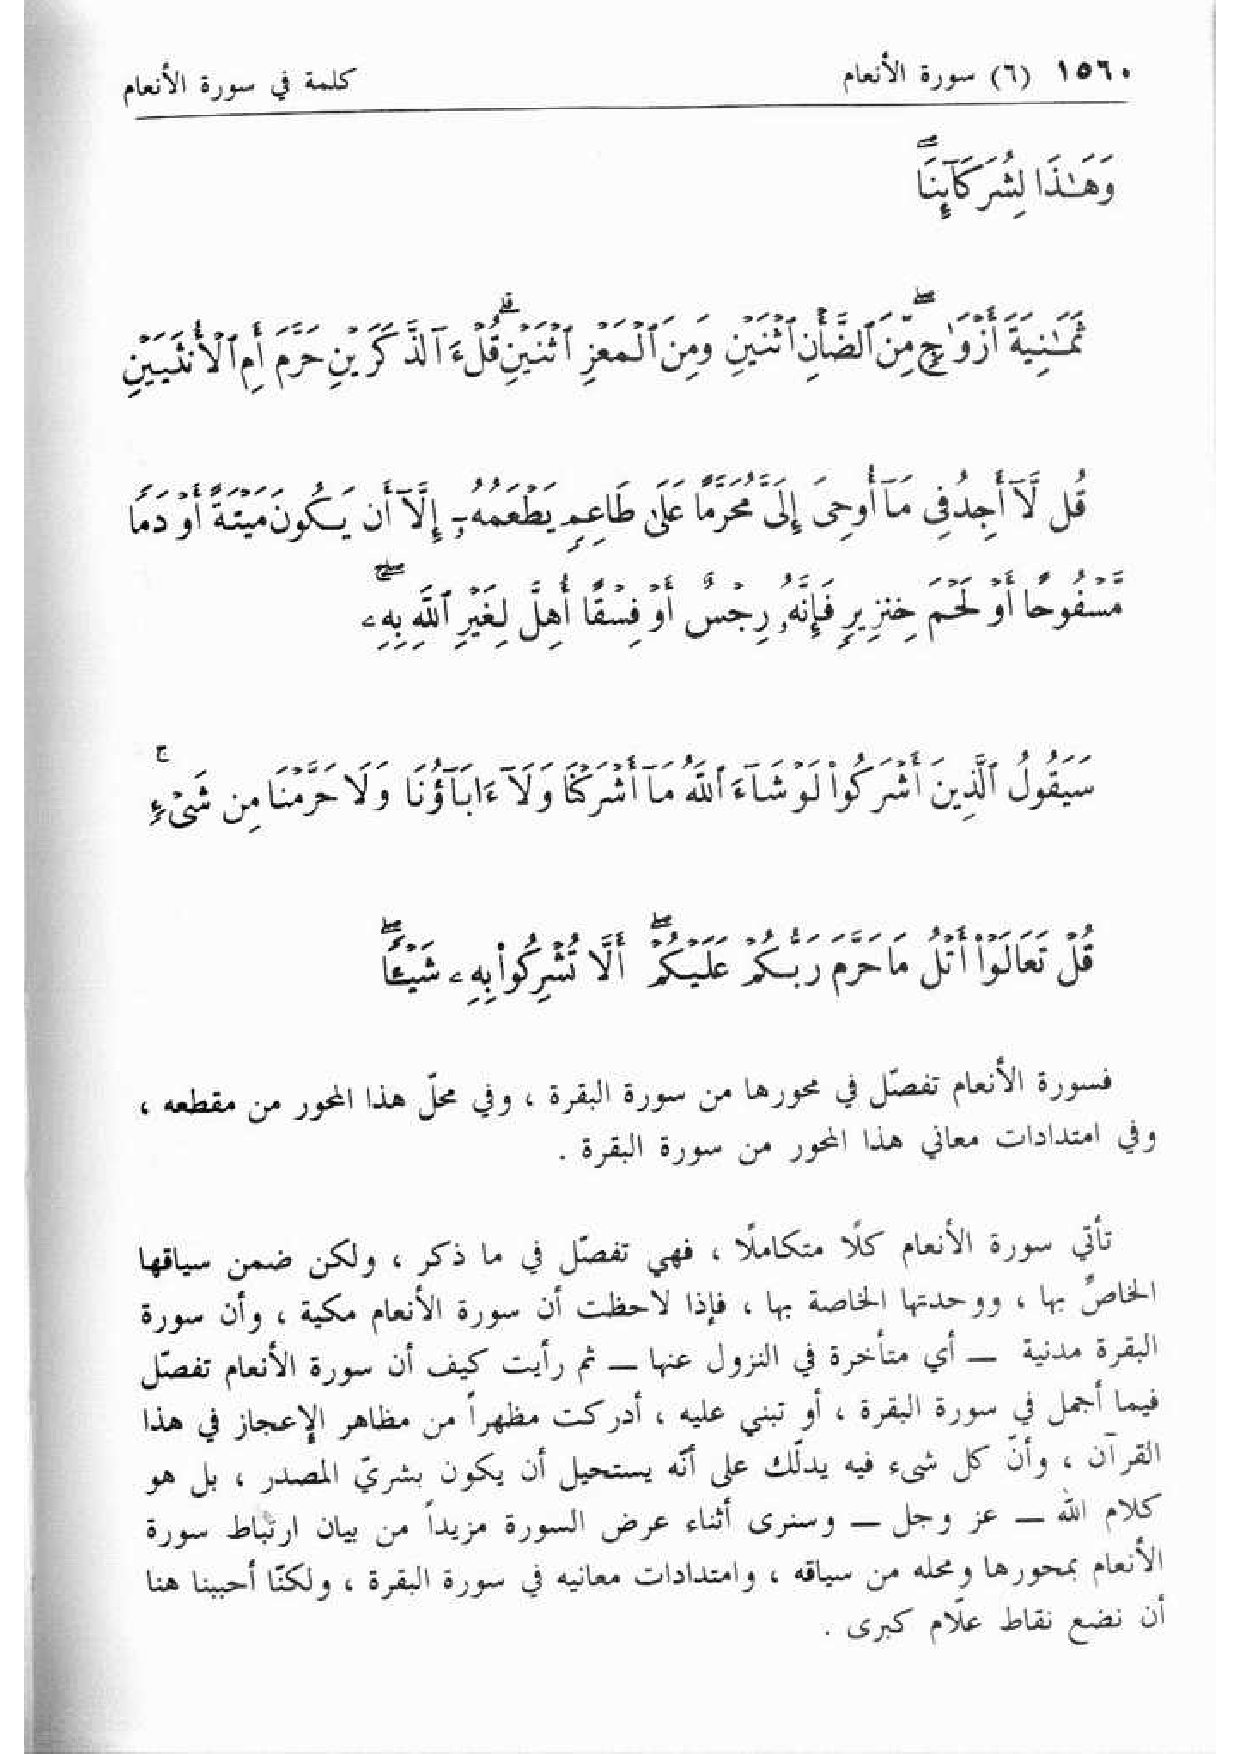 ١٥٦٠ (٦) سورة الأنعام كلمة في سورة الأنعام
وَهَـٰذَا لِشُرَكَآئِنَاۖ
ثَمَـٰنِيَةَ أَزْوَٰجٍۖ مِّنَ ٱلضَّأْنِ ٱثْنَيْنِ وَمِنَ ٱلْمَعْزِ ٱثْنَيْنِۗ قُلْ ءَآلذَّكَرَيْنِ حَرَّمَ أَمِ ٱلْأُنثَيَيْنِ
قُل لَّآ أَجِدُ فِى مَآ أُوحِىَ إِلَىَّ مُحَرَّمًا عَلَىٰ طَاعِمٍ يَطْعَمُهُۥٓ إِلَّآ أَن يَكُونَ مَيْتَةً أَوْ دَمًا
مَّسْفُوحًا أَوْ لَحْمَ خِنزِيرٍ فَإِنَّهُۥ رِجْسٌ أَوْ فِسْقًا أُهِلَّ لِغَيْرِ ٱللَّهِ بِهِۦۖ
سَيَقُولُ ٱلَّذِينَ أَشْرَكُوا۟ لَوْ شَآءَ ٱللَّهُ مَآ أَشْرَكْنَا وَلَآ ءَابَآؤُنَا وَلَا حَرَّمْنَا مِن شَىْءٍۚ
قُلْ تَعَالَوْا۟ أَتْلُ مَا حَرَّمَ رَبُّكُمْ عَلَيْكُمْۖ أَلَّا تُشْرِكُوا۟ بِهِۦ شَيْـًٔاۖ
فسورة الأنعام تفصّل في محورها من سورة البقرة ، وفي محلّ هذا المحور من مقطعه ،
وفي امتدادات معاني هذا المحور من سورة البقرة .
تأتي سورة الأنعام كلًا متكاملًا ، فهي تفصّل في ما ذكر ، ولكن ضمن سياقها
الخاصِّ بها ، ووحدتها الخاصة بها ، فإذا لاحظت أن سورة الأنعام مكية ، وأن سورة
البقرة مدنية — أي متأخرة في النزول عنها — ثم رأيت كيف أن سورة الأنعام تفصّل
فيما أجمل في سورة البقرة ، أو تبني عليه ، أدركت مظهراً من مظاهر الإعجاز في هذا
القرآن ، وأنّ كل شىء فيه يدلّك على أنّه يستحيل أن يكون بشريّ المصدر ، بل هو
كلام الله — عز وجل — وسنرى أثناء عرض السورة مزيداً من بيان ارتباط سورة
الأنعام بمحورها ومحله من سياقه ، وامتدادات معانيه في سورة البقرة ، ولكنّا أحببنا هنا
أن نضع نقاط علّام كبرى .